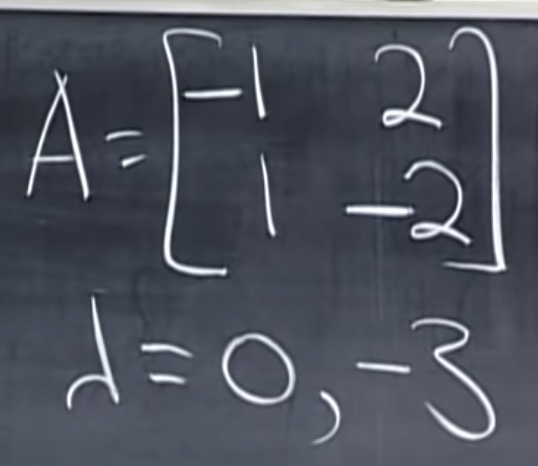 A = [ -1 2
1 -2 ]
λ = 0, -3